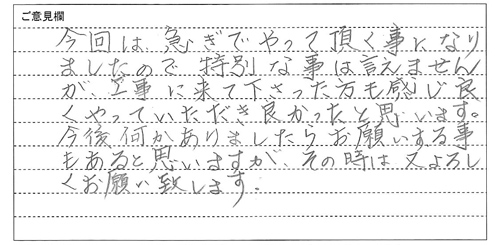 ご意見欄
今回は急ぎでやって頂く事になり
ましたので特別な事は言えません
が、工事に来て下さった方も感じ良
くやっていただき良かったと思います。
今後何かありましたらお願いする事
もあると思いますが、その時は又よろし
くお願い致します.